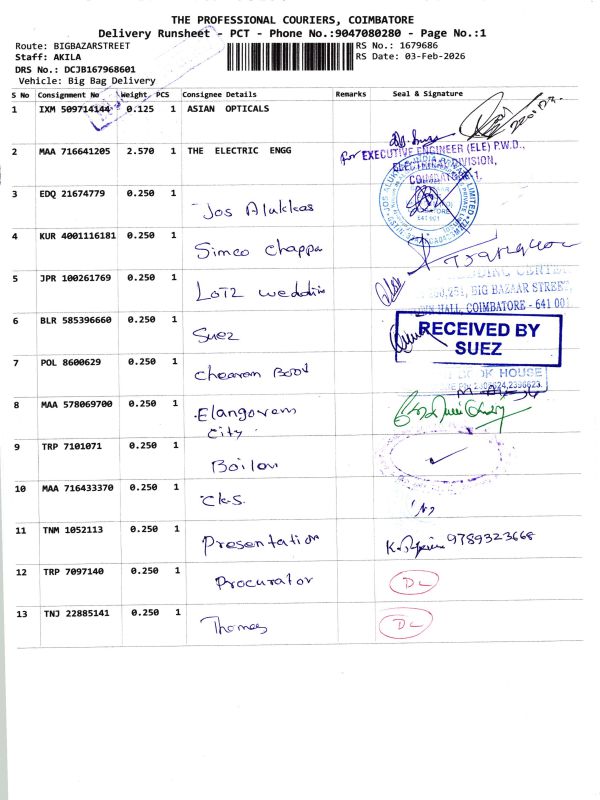 THE PROFESSIONAL COURIERS, COIMBATORE
Delivery Runsheet - PCT - Phone No.:9047080280 - Page No.:1
Route: BIGBAZARSTREET
RS No.: 1679686
Staff: AKILA
RS Date: 03-Feb-2026
DRS No.: DCJB167968601
Vehicle: Big Bag Delivery
S No Consignment No Weight PCS Consignee Details Remarks Seal & Signature
1 IXM 509714144 0.125 1 ASIAN OPTICALS
2 MAA 716641205 2.570 1 THE ELECTRIC ENGG
for EXECUTIVE ENGINEER (ELE) P.W.D.,
ELECTRICAL DIVISION,
COIMBATORE-1.
3 EDQ 21674779 0.250 1 Jos Alukkas
4 KUR 4001116181 0.250 1 Simco chappa
5 JPR 100261769 0.250 1 LOTZ
BIG BAZAAR STREET,
HALL, COIMBATORE - 641 001
6 BLR 585396660 0.250 1 Suez
RECEIVED BY
SUEZ
7 POL 8600629 0.250 1
BOOK HOUSE
8 MAA 578069700 0.250 1 Elangovan
City
9 TRP 7101071 0.250 1
10 MAA 716433370 0.250 1
11 TNM 1052113 0.250 1 Presentation 9789323668
12 TRP 7097140 0.250 1 Procurator DL
13 TNJ 22885141 0.250 1 Thomas DL